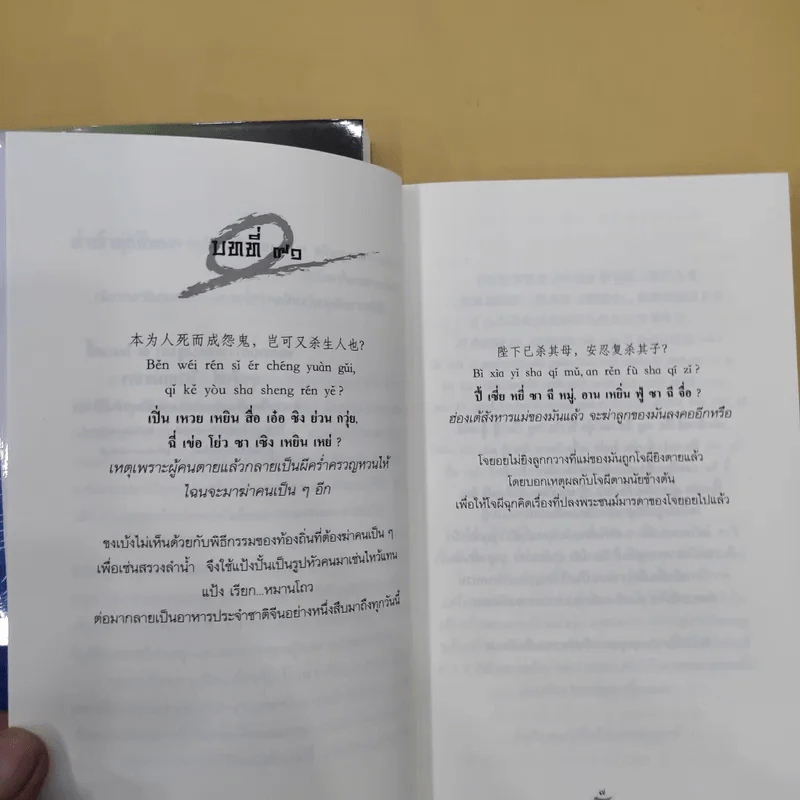 บทที่ ๙๑
本为人死而成怨鬼，岂可又杀生人也?
Běn wéi rén sǐ ér chéng yuàn gǔi,
qǐ kě yòu sha sheng rén yě?
เปิ่น เหวย เหยิน สื่อ เอ๋อ ชิง ย่วน กวุ่ย,
ฉี่ เข่อ โย่ว ซา เชิง เหยิน เหย่ ?
เหตุเพราะผู้คนตายแล้วกลายเป็นผีคร่ำครวญหวนไห้
ไฉนจะมาฆ่าคนเป็น ๆ อีก
ขงเบ้งไม่เห็นด้วยกับพิธีกรรมของท้องถิ่นที่ต้องฆ่าคนเป็น ๆ
เพื่อเซ่นสรวงลำน้ำ จึงใช้แป้งปั้นเป็นรูปหัวคนมาเซ่นไหว้แทน
แป้ง เรียก...หมานโถว
ต่อมากลายเป็นอาหารประจำชาติจีนอย่างหนึ่งสืบมาถึงทุกวันนี้
陛下已杀其母，安忍复杀其子?
Bì xìa yǐ sha qí mǔ,an rěn fù sha qí zǐ?
ปี้ เซี่ย หยี่ ซา ฉี หมู่, อาน เหยิ่น ฟู่ ซา ฉี จื่อ ?
ฮ่องเต้สังหารแม่ของมันแล้ว จะฆ่าลูกของมันลงคออีกหรือ
โจยอยไม่ยิงลูกกวางที่แม่ของมันถูกโจผียิงตายแล้ว
โดยบอกเหตุผลกับโจผีตามนัยข้างต้น
เพื่อให้โจผีฉุกคิดเรื่องที่ปลงพระชนม์มารดาของโจยอยไปแล้ว